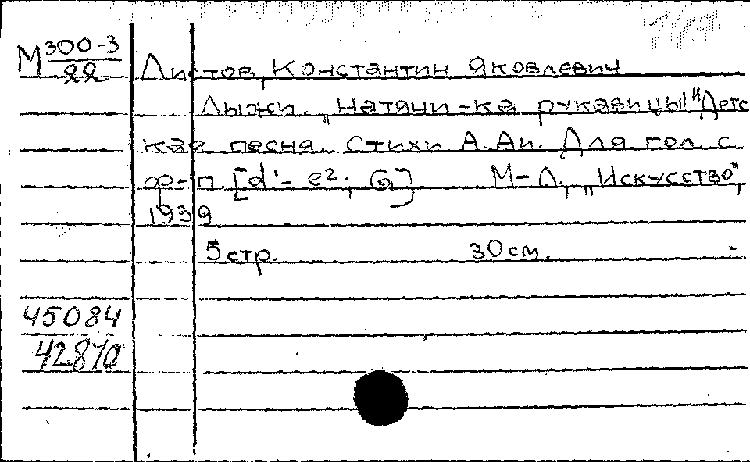 М 300-3
22
Листов, Константин Яковлевич
Лыжи. "Натяни-ка рукавицы!" Детс
кая песня. Стихи А. Ай. Для гол. с
ф-п [d'- e²; G] М-Л., "Искусство",
1939
5 стр. 30 см.
45084
42870